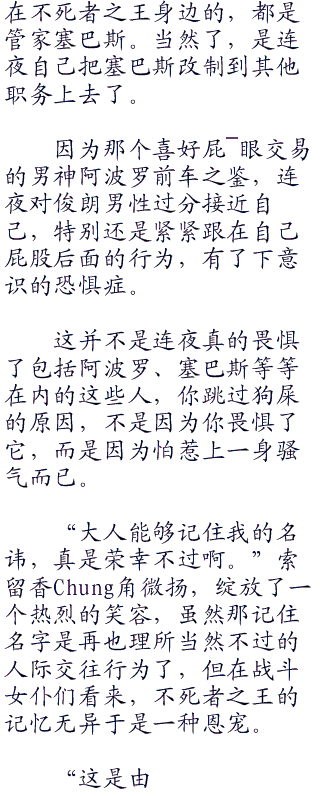 在不死者之王身边的，都是
管家塞巴斯。当然了，是连
夜自己把塞巴斯改制到其他
职务上去了。
因为那个喜好屁¯眼交易
的男神阿波罗前车之鉴，连
夜对俊朗男性过分接近自
己，特别还是紧紧跟在自己
屁股后面的行为，有了下意
识的恐惧症。
这并不是连夜真的畏惧
了包括阿波罗、塞巴斯等等
在内的这些人，你跳过狗屎
的原因，不是因为你畏惧了
它，而是因为怕惹上一身骚
气而已。
“大人能够记住我的名
讳，真是荣幸不过啊。”索
留香Chung角微扬，绽放了一
个热烈的笑容，虽然那记住
名字是再也理所当然不过的
人际交往行为了，但在战斗
女仆们看来，不死者之王的
记忆无异于是一种恩宠。
“这是由